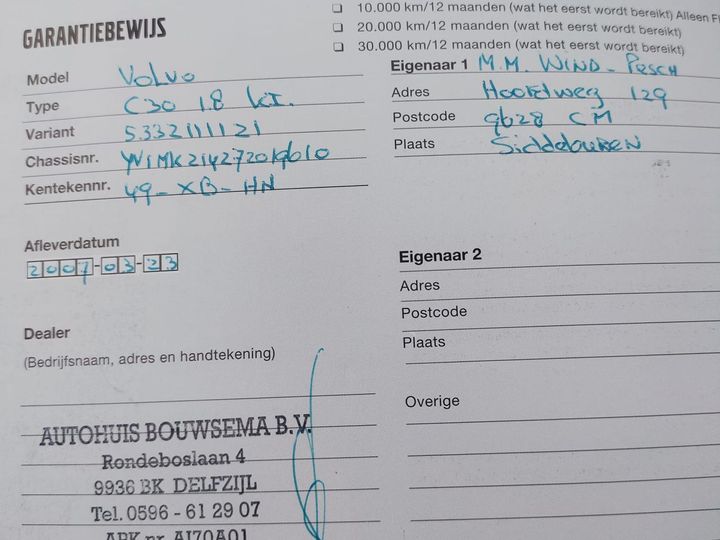 GARANTIEBEWIJS
Model Volvo
Type C30 1.8 KI.
Variant 5332111121
Chassisnr. YV1MK214272019610
Kentekennr. 49-XB-HN
Afleverdatum
2007-03-23
Dealer
(Bedrijfsnaam, adres en handtekening)
AUTOHUIS BOUWSEMA B.V.
Rondeboslaan 4
9936 BK DELFZIJL
Tel. 0596 - 61 29 07
APK nr. AI70A01
10.000 km/12 maanden (wat het eerst wordt bereikt) Alleen
20.000 km/12 maanden (wat het eerst wordt bereikt)
30.000 km/12 maanden (wat het eerst wordt bereikt)
Eigenaar 1 M.M. WIND-PESCH
Adres Hoofdweg 129
Postcode 9628 CM
Plaats Siddeburen
Eigenaar 2
Adres
Postcode
Plaats
Overige